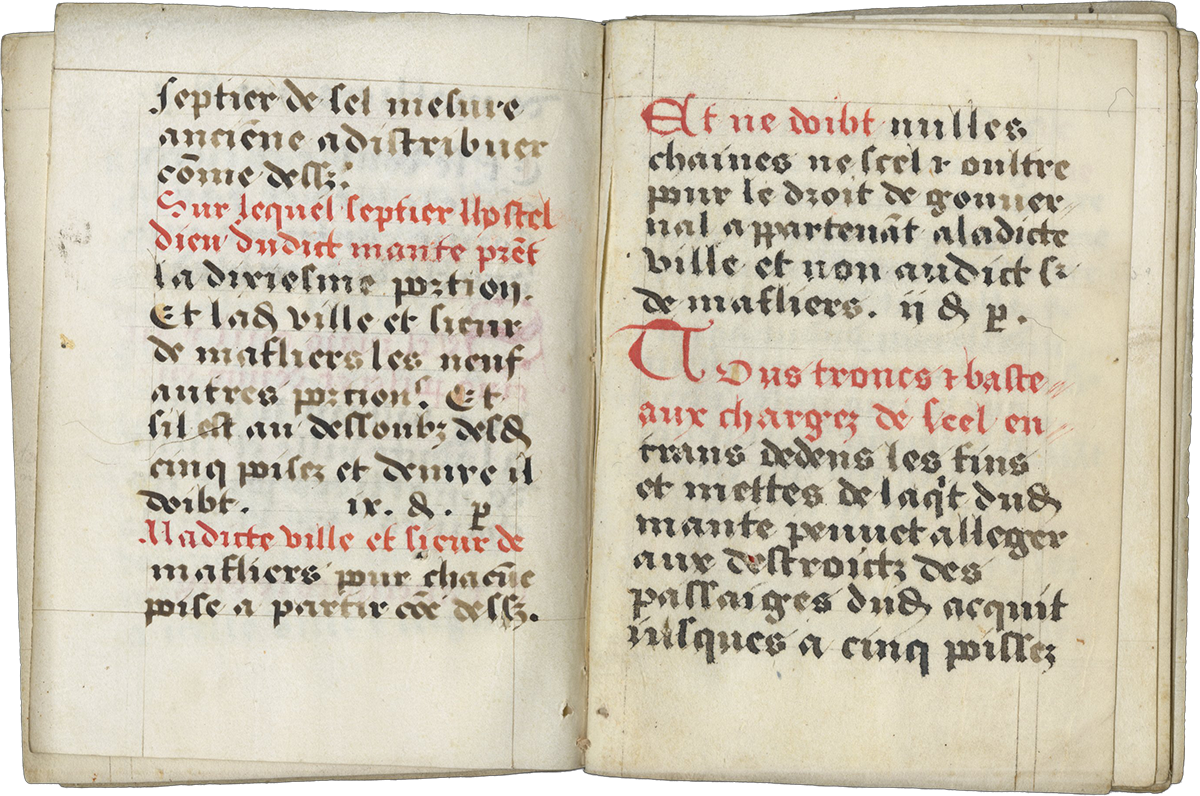 septier de sel mesure
anciēne adistribuer
cōme dessz.
Sur lequel septier lhostel
dieu dudict mante prēt
la dixiesme portion.
Et lad ville et sieur
de mafliers les neuf
autres portions. Et
sil est au dessoubz desd
cinq poisez et demye il
doibt. ix. d. p
A ladicte ville et sieur de
mafliers pour chacūe
poise a partir cōe dessz.
Et ne doibt nulles
chaines ne scel ⁊ oultre
pour le droit de gouuer
nal appartenāt aladicte
ville et non audict sr
de mafliers. ii d p.
Tous troncs ⁊ baste
aux chargez de scel en
trans dedens les fins
et mettes de laqt dud
mante peuuet alleger
aux destroictz des
passaiges dud acquit
iusques a cinq poissez